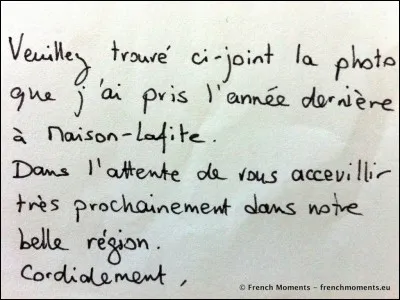 Veuillez trouvé ci-joint la photo
que j'ai pris l'année dernière
à Maison-Lafite.
Dans l'attente de vous accevillir
très prochainement dans notre
belle région.
Cordialement,
© French Moments - frenchmoments.eu